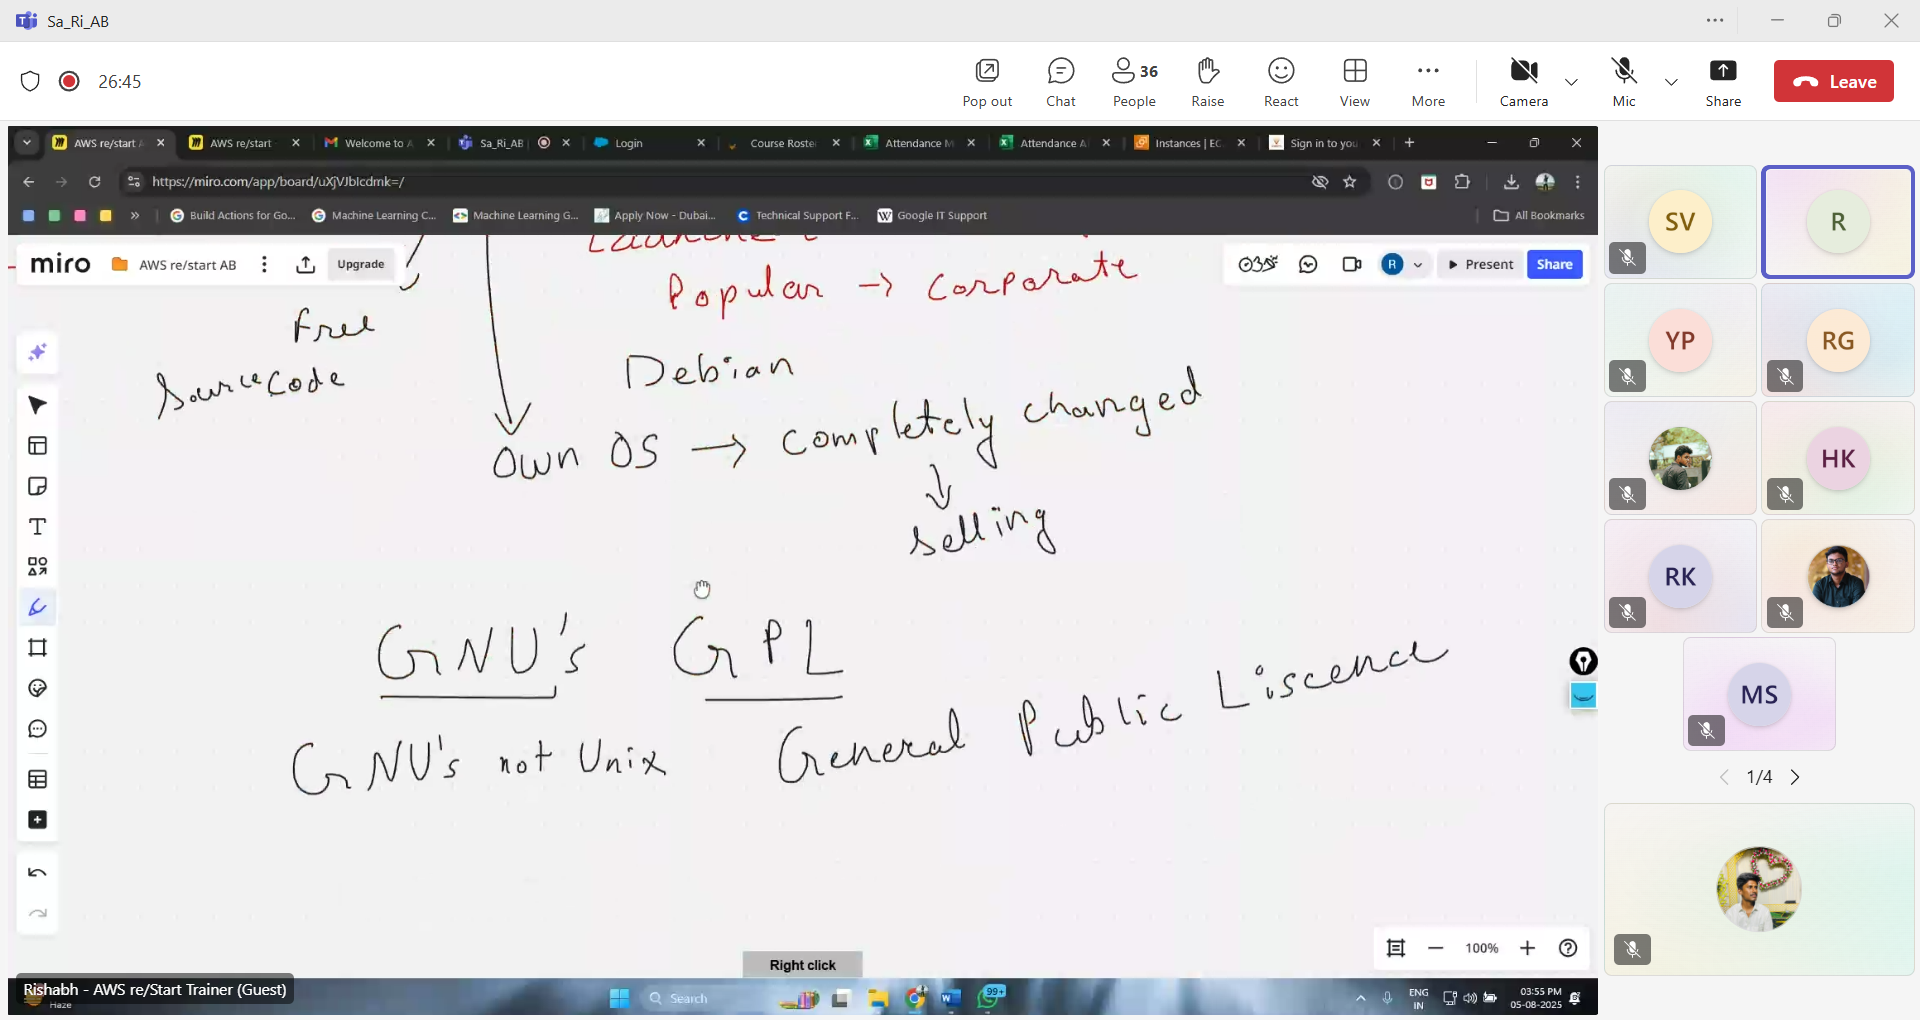 Sa_Ri_AB
26:45
Pop out
Chat
36
People
Raise
React
View
More
Camera
Mic
Share
Leave
AWS re/start A
AWS re/start
Welcome to A
Sa_Ri_AB
Login
Course Roster
Attendance M
Attendance A
Instances | EC
Sign in to you
https://miro.com/app/board/uXjVJblcdmk=/
Build Actions for Go...
Machine Learning C...
Machine Learning G...
Apply Now - Dubai...
Technical Support F...
Google IT Support
All Bookmarks
miro
AWS re/start AB
Upgrade
R
Present
Share
Popular → Corporate
Free
Source Code
Debian
Own OS → completely changed
↓
selling
GNU's GPL
GNU's not Unix General Public Liscence
100%
Right click
Rishabh - AWS re/Start Trainer (Guest)
Haze
Search
99+
ENG
IN
03:55 PM
05-08-2025
SV
R
YP
RG
HK
RK
MS
1/4